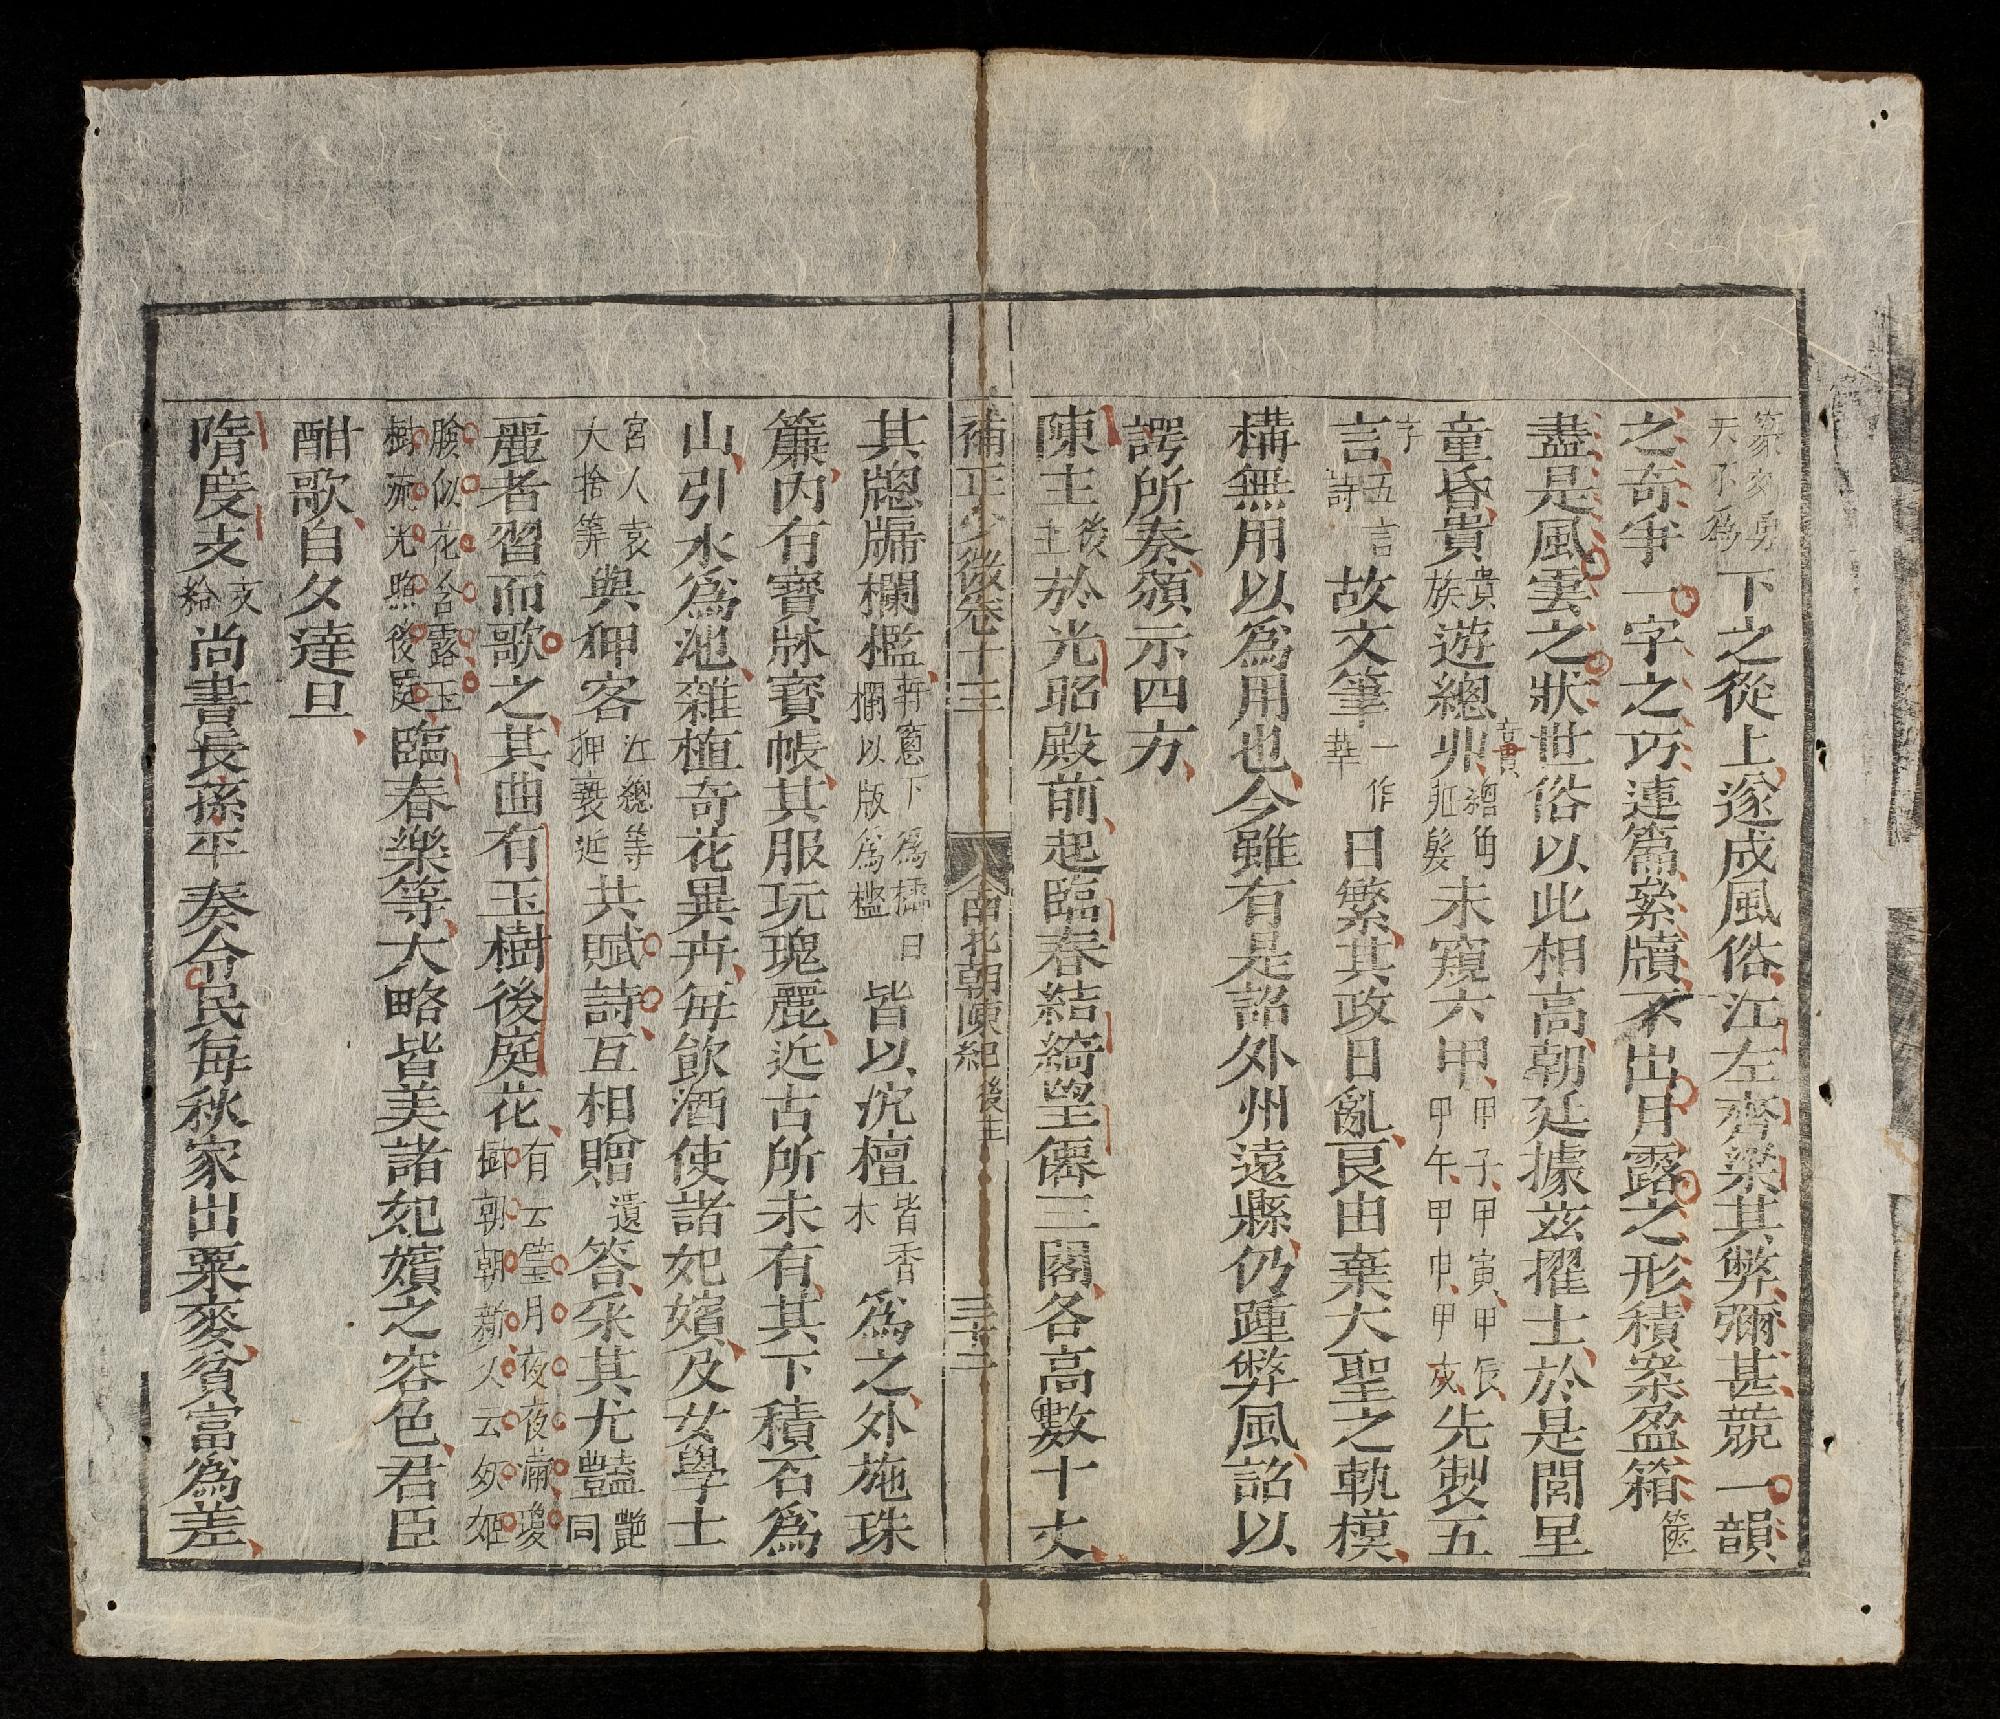 篆文勇天不為下之從上遂成風俗江左齊梁其弊彌甚競一韻
之奇爭一字之巧連篇絫牘不出月露之形積案盈箱篋
盡是風雲之狀世俗以此相高朝廷據茲擢士於是閭里
童昏貴貴族遊總丱音貫總角丱髮未窺六甲甲子甲寅甲辰甲午甲申甲戌先製五
言五言詩字故文筆一作華日繁其政日亂良由棄大聖之軌模
構無用以為用也今雖有是詔外州遠縣仍踵弊風詔以
諤所奏頒示四方
陳主後主於光昭殿前起臨春結綺望僊三閣各高數十丈
補正少微卷十三 南北朝陳紀後主 三十二
其牕牖欄檻軒窓下為櫺曰欄以版為檻皆以沉檀皆香木為之外施珠
簾內有寶牀寶帳其服玩瑰麗近古所未有其下積石為
山引水為池雜植奇花異卉每飲酒使諸妃嬪及女學士
宮人袁大捨等與狎客江總等狎褻近共賦詩互相贈遺答采其尤豔豔艷同
麗者習而歌之其曲有玉樹後庭花有云璧月夜夜滿瓊樹朝朝新又云妖姬
臉似花含露玉樹流光照後庭臨春樂等大略皆美諸妃嬪之容色君臣
酣歌自夕達旦
隋度支支給尚書長孫平奏令民每秋家出粟麥貧富為差